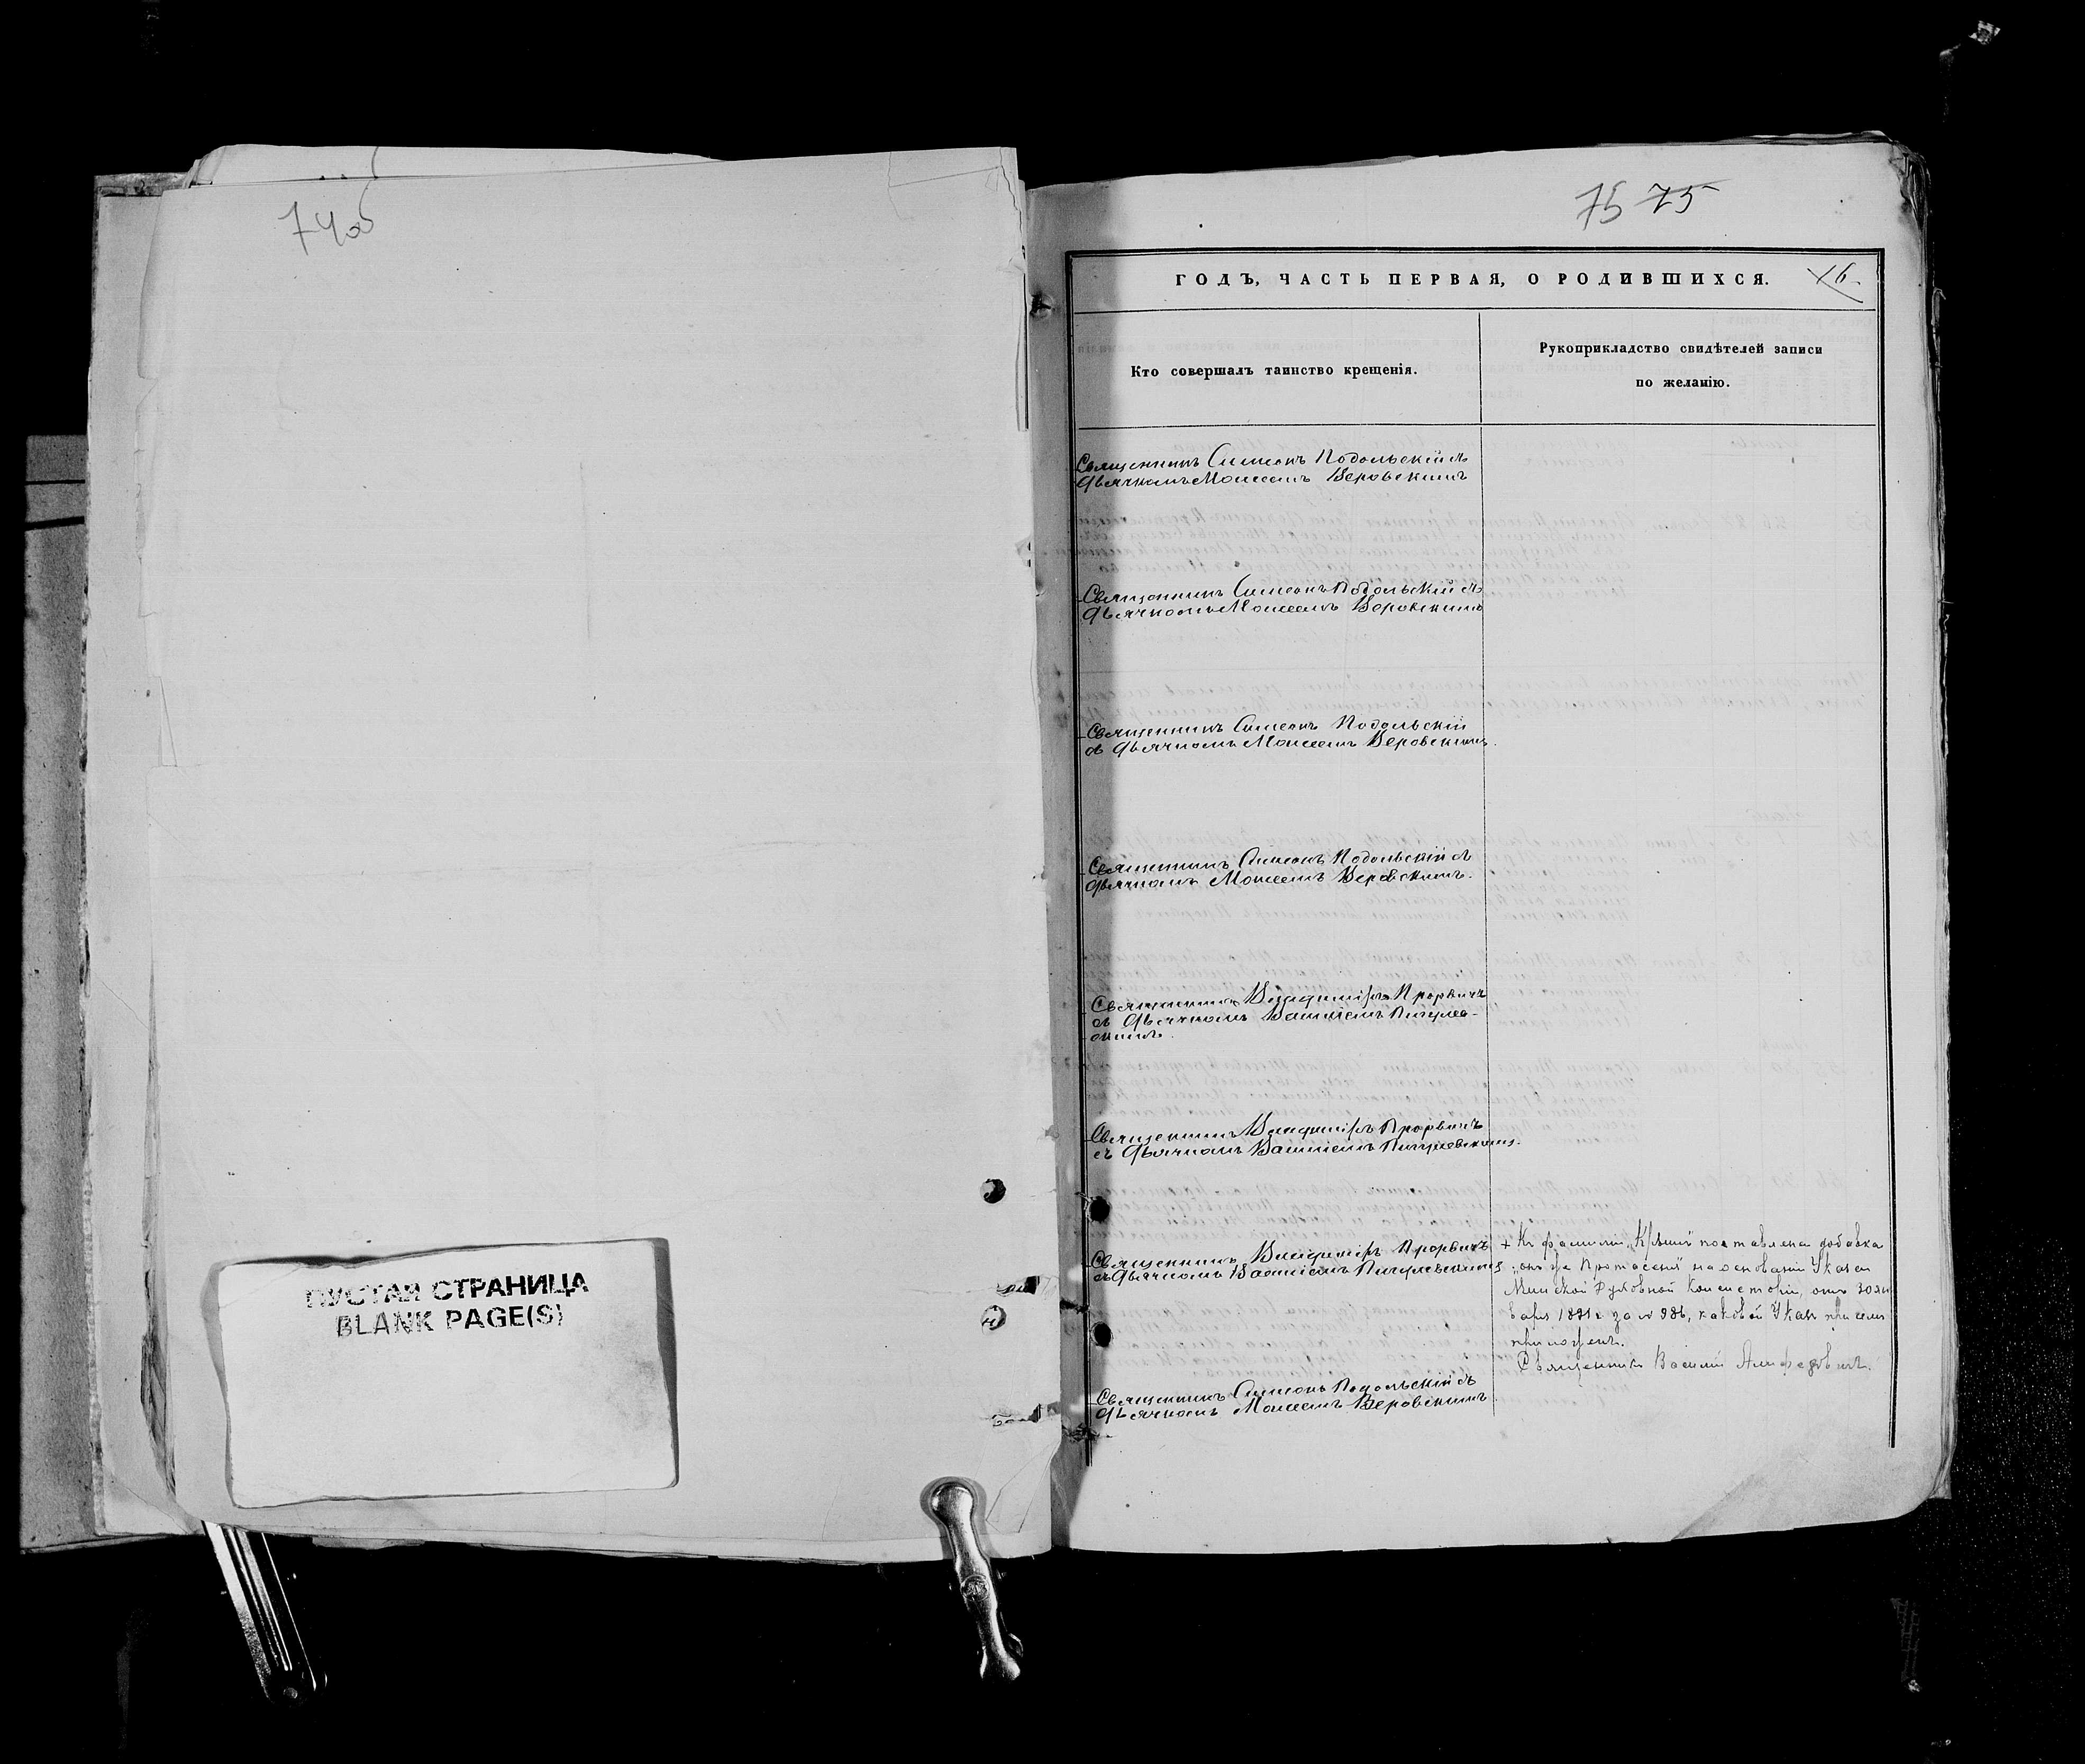 74об
75 75
ГОДЪ, ЧАСТЬ ПЕРВАЯ, О РОДИВШИХСЯ.
Кто совершалъ таинство крещенія.
Рукоприкладство свидѣтелей записи
по желанію.
Священникъ Симеонъ Подольскій съ
дьячкомъ Моисеемъ Веровскимъ
Священникъ Симеонъ Подольскій съ
дьячкомъ Моисеемъ Веровскимъ
Священникъ Симеонъ Подольскій
съ дьячкомъ Моисеемъ Веровскимъ.
Священникъ Симеонъ Подольскій съ
дьячкомъ Моисеемъ Веровскимъ.
Священникъ Владиміръ Прорвичъ
съ дьячкомъ Василіемъ Пигулев-
скимъ.
Священникъ Владиміръ Прорвичъ
съ дьячкомъ Василіемъ Пигулевскимъ.
Священникъ Владиміръ Прорвичъ
съ дьячкомъ Василіемъ Пигулевскимъ
+ Къ фамиліи поставлена добавка
„онъ же на основаніи Указа
Минской Духовной Консисторіи, отъ 30 ян
варя 1891 г. за № 986, каковой Указъ при семъ
приложенъ.
Священникъ Василій
Священникъ Симеонъ Подольскій съ
дьячкомъ Моисеемъ Веровскимъ
ПУСТАЯ СТРАНИЦА
BLANK PAGE(S)